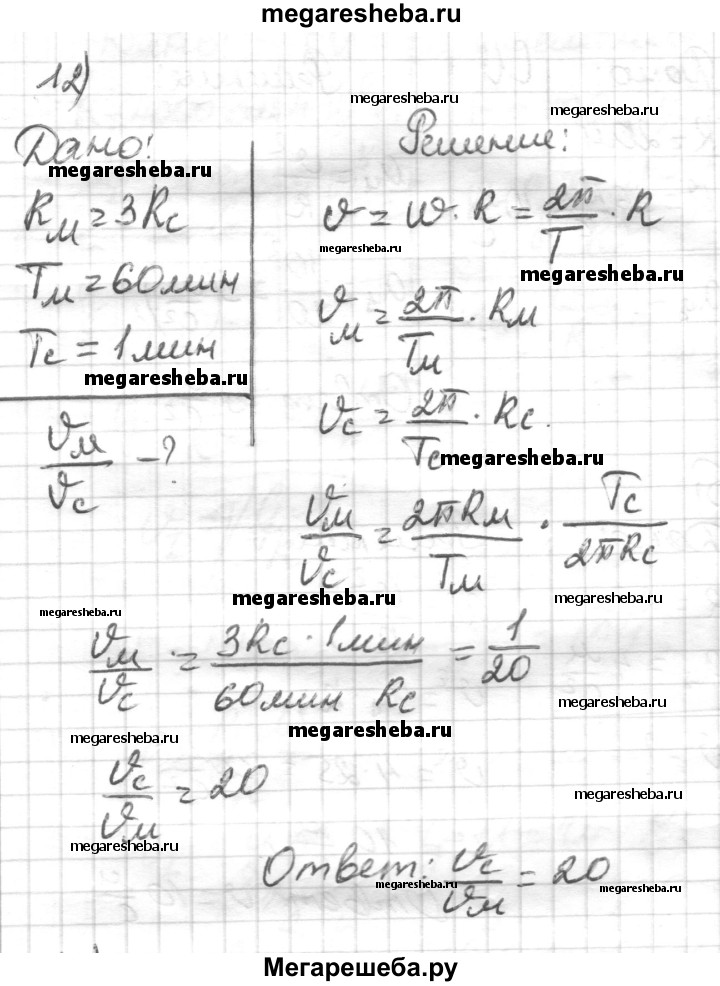 megaresheba.ru
12)
megaresheba.ru
megaresheba.ru
Дано:
Решение:
megaresheba.ru
Rм = 3Rc
υ = ω · R = 2π/T · R
megaresheba.ru
megaresheba.ru
Tм = 60мин
υм = 2π/Tм · Rм
Tc = 1мин
megaresheba.ru
υc = 2π/Tc · Rc.
megaresheba.ru
υм/υc - ?
υм/υc = 2πRм/Tм · Tc/2πRc
megaresheba.ru
megaresheba.ru
megaresheba.ru
υм/υc = 3Rc · 1мин/60мин Rc = 1/20
megaresheba.ru
megaresheba.ru
megaresheba.ru
υc/υм = 20
megaresheba.ru
megaresheba.ru
Ответ: υc/υм = 20
megaresheba.ru
megaresheba.ru
Мегарешеба.ру